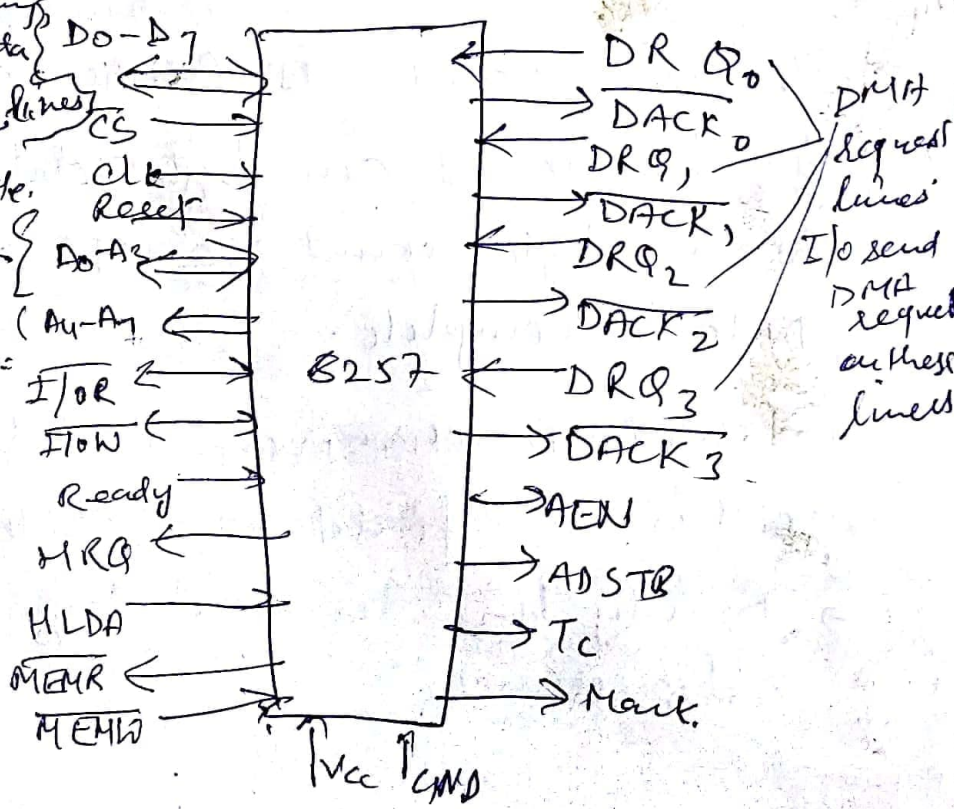 D0-D7
lines
CS
Clk
Reset
A0-A3
(A4-A7
I/OR
I/OW
Ready
HRQ
HLDA
MEMR
MEMW
8257
Vcc
GND
DRQ0
DACK0
DRQ1
DACK1
DRQ2
DACK2
DRQ3
DACK3
AEN
ADSTB
TC
Mark.
DMA
request
lines
I/O send
DMA
reques
on these
lines